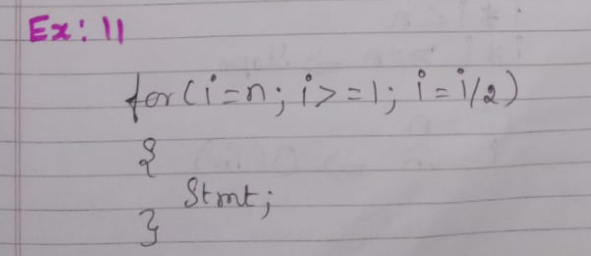 Ex: 11
for(i=n; i>=1; i=i/2)
{
Stmt;
}